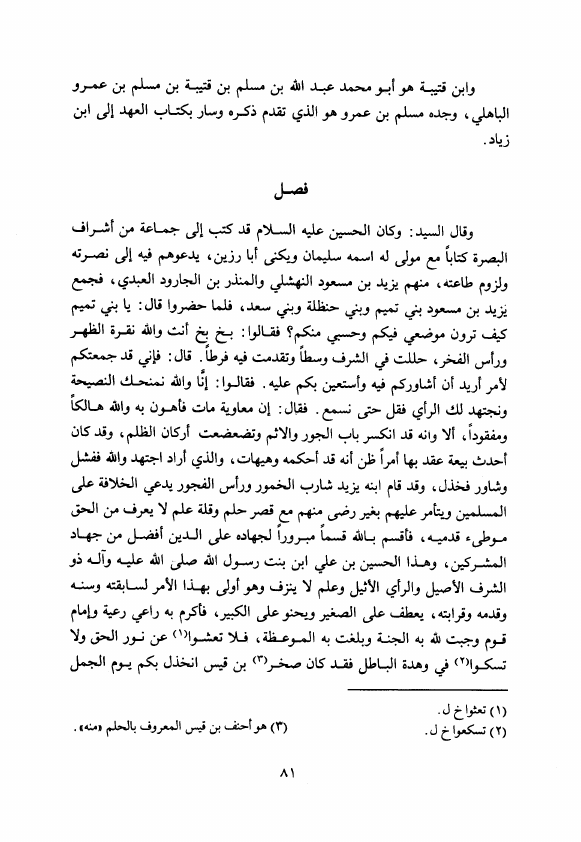 وابن قتيبة هو أبـو محمد عبـد الله بن مسلم بن قتيبة بن مسلم بن عمـرو
الباهلي، وجده مسلم بن عمرو هو الذي تقدم ذكـره وسار بكتـاب العهد إلى ابن
زياد.
فصـل
وقال السيد: وكان الحسين عليه السـلام قد كتب إلى جمـاعة من أشـراف
البصرة كتاباً مع مولى له اسمه سليمان ويكنى أبا رزين، يدعوهم فيه إلى نصـرته
ولزوم طاعته، منهم يزيد بن مسعود النهشلي والمنذر بن الجارود العبدي، فجمع
يزيد بن مسعود بني تميم وبني حنظلة وبني سعد، فلما حضروا قال: يا بني تميم
كيف ترون موضعي فيكم وحسبي منكم؟ فقـالوا: بـخ بخ أنت والله نقـرة الظهـر
ورأس الفخر، حللت في الشرف وسطاً وتقدمت فيه فرطاً. قال: فإني قد جمعتكم
لأمر أريد أن أشاوركم فيه وأستعين بكم عليه. فقـالـوا: إنَّا والله نمنحـك النصيحة
ونجتهد لك الرأي فقل حتى نسمع. فقال: إن معاوية مات فأهون به والله هـالكاً
ومفقوداً، ألا وانه قد انكسر باب الجور والاثم وتضعضعت أركان الظلم، وقد كان
أحدث بيعة عقد بها أمراً ظن أنه قد أحكمه وهيهات، والذي أراد اجتهد والله ففشل
وشاور فخذل، وقد قام ابنه يزيد شارب الخمور ورأس الفجور يدعي الخلافة على
المسلمين ويتأمر عليهم بغير رضى منهم مع قصر حلم وقلة علم لا يعرف من الحق
مـوطىء قدميـه، فأقسم بـالله قسمـاً مبـروراً لجهاده على الـدين أفضـل من جهـاد
المشـركين، وهـذا الحسين بن علي ابن بنت رسـول الله صلى الله عليـه وآلـه ذو
الشرف الأصيل والرأي الأثيل وعلم لا ينزف وهو أولى بهـذا الأمر لسـابقته وسنـه
وقدمه وقرابته، يعطف على الصغير ويحنو على الكبير، فأكرم به راعي رعية وإمام
قـوم وجبت لله به الجنـة وبلغت به المـوعـظة، فـلا تعشـوا(١) عن نـور الحق ولا
تسكـوا(٢) في وهدة البـاطل فقـد كان صخـر(٣) بن قيس انخذل بكم يـوم الجمل
(١) تعثوا خ ل.
(٢) تسكعوا خ ل.
(٣) هو أحنف بن قيس المعروف بالحلم «منه».
٨١